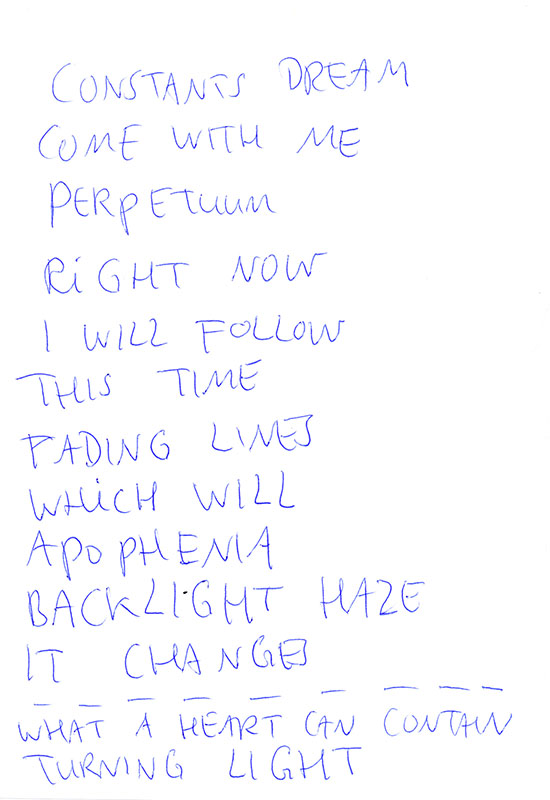 CONSTANTS DREAM
COME WITH ME
PERPETUUM
RiGHT NOW
I WILL FOLLOW
THIS TIME
FADING LINES
WHiCH WILL
APOPHENIA
BACKLIGHT HAZE
IT CHANGES
WHAT A HEART CAN CONTAIN
TURNING LIGHT